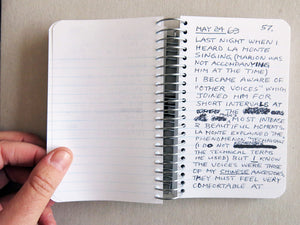 MAY 24 63 57.
LAST NIGHT WHEN I
HEARD LA MONTE
SINGING (MARION WAS
NOT ACCOMPANYING
HIM AT THE TIME)
I BECAME AWARE OF
"OTHER VOICES" WHICH
JOINED HIM FOR
SHORT INTERVALS AT
THE
MOST INTENSE
& BEAUTIFUL MOMENTS.
LA MONTE EXPLAINED THE
PHENOMENON
(I DO NOT
THE TECHNICAL TERMS
HE USED) BUT I KNOW
THE VOICES WERE THOSE
OF MY CHINESE ANCESTORS,
THEY MUST FEEL VERY
COMFORTABLE AT